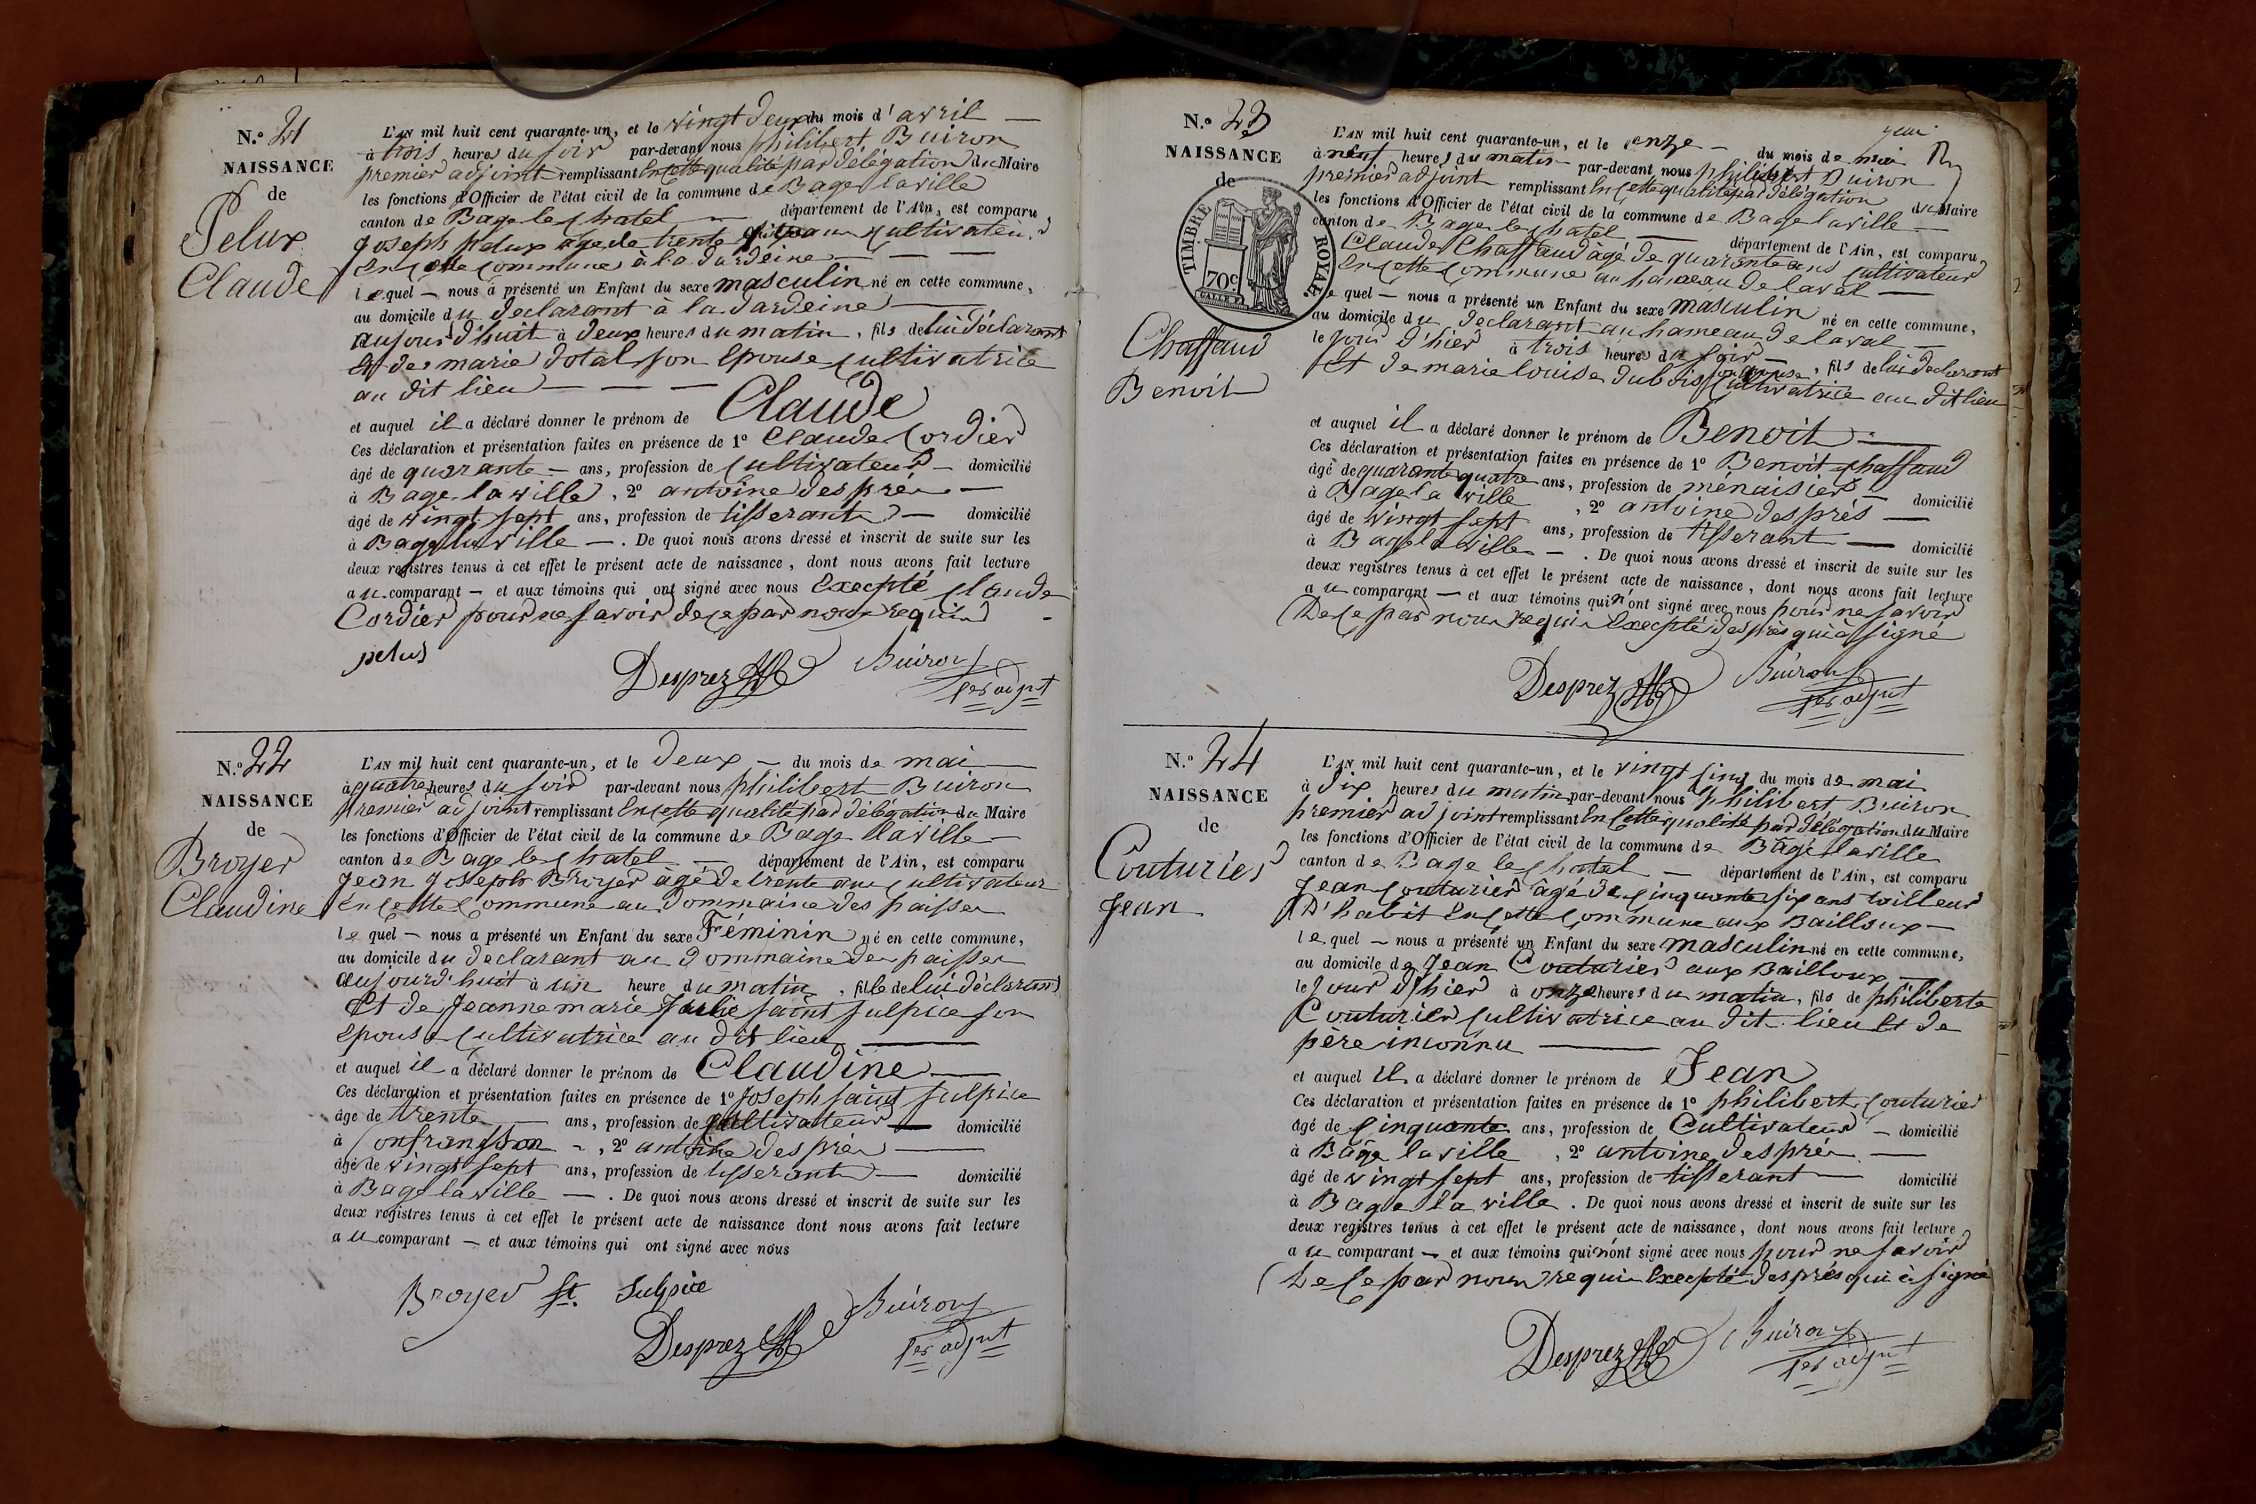 N.º 21
NAISSANCE
de
Pelux
Claude
L'AN mil huit cent quarante-un, et le vingt deux du mois d'avril
à trois heures du soir par-devant nous philibert Buiron
premier adjoint remplissant En cette qualité par délégation du Maire
les fonctions d'Officier de l'état civil de la commune de Bage la ville
canton de Bage le chatel département de l'Ain, est comparu
Joseph pelux agé de trente ans Cultivateur
En cette Commune à la Jardeine
le quel — nous a présenté un Enfant du sexe masculin né en cette commune,
au domicile du declarant à la Jardeine
aujourd'huit à deux heures du matin, fils de lui déclarant
Et de marie dotal son Epouse Cultivatrice
au dit lieu
et auquel il a déclaré donner le prénom de Claude
Ces déclaration et présentation faites en présence de 1º Claude Cordier
âgé de quarante — ans, profession de Cultivateur — domicilié
à Bage la ville, 2º antoine després
âgé de vingt sept ans, profession de tisserant — domicilié
à Bage la ville — . De quoi nous avons dressé et inscrit de suite sur les
deux registres tenus à cet effet le présent acte de naissance, dont nous avons fait lecture
au comparant — et aux témoins qui ont signé avec nous Excepté Claude
Cordier pour ne savoir de ce par nous requis
pelus
Desprez Buiron
1er adjnt
N.º 22
NAISSANCE
de
Broyer
Claudine
L'AN mil huit cent quarante-un, et le Deux — du mois de mai
à quatre heures du soir par-devant nous philibert Buiron
premier adjoint remplissant En cette qualité par délégation du Maire
les fonctions d'Officier de l'état civil de la commune de Bage laville
canton de Bage le chatel département de l'Ain, est comparu
Jean Joseph Broyer agé de trente ans Cultivateur
En cette Commune au Dommaine des paisses
le quel — nous a présenté un Enfant du sexe Féminin né en cette commune,
au domicile du declarant au Dommaine des paisses
aujourd'huit à un heure du matin, fille de lui déclarant
Et de Jeanne marie Julie saint sulpice son
Epouse Cultivatrice au dit lieu
et auquel il a déclaré donner le prénom de Claudine
Ces déclaration et présentation faites en présence de 1º Joseph saint sulpice
âgé de trente ans, profession de Cultivateur domicilié
à Confransson, 2º antoine després
âgé de vingt sept ans, profession de tisserant — domicilié
à Bage la ville — . De quoi nous avons dressé et inscrit de suite sur les
deux registres tenus à cet effet le présent acte de naissance dont nous avons fait lecture
au comparant — et aux témoins qui ont signé avec nous
Broyer St. Sulpice
Buiron
Desprez 1er adjnt
N.º 23
NAISSANCE
de
TIMBRE ROYAL.
70c
Chaffaud
Benoit
L'AN mil huit cent quarante-un, et le onze — du mois de mai
à neuf heures du matin par-devant nous philibert Buiron
premier adjoint remplissant En cette qualité par délégation du Maire
les fonctions d'Officier de l'état civil de la commune de Bage la ville
canton de Bage le chatel département de l'Ain, est comparu
Claude Chaffaud âgé de quarante ans Cultivateur
En cette Commune au hameau de laval
le quel — nous a présenté un Enfant du sexe masculin né en cette commune,
au domicile du declarant au hameau de laval
le jour d'hier à trois heures du soir — , fils de lui declarant
Et de marie louise dubois son Epouse Cultivatrice au dit lieu
et auquel il a déclaré donner le prénom de Benoit
Ces déclaration et présentation faites en présence de 1º Benoit Chaffaud
âgé de quarante quatre ans, profession de ménuisier — domicilié
à Bage la ville, 2º antoine després
âgé de vingt sept ans, profession de tisserant domicilié
à Bage la ville — . De quoi nous avons dressé et inscrit de suite sur les
deux registres tenus à cet effet le présent acte de naissance, dont nous avons fait lecture
au comparant — et aux témoins qui n'ont signé avec nous pour ne savoir
De ce par nous requis Excepté després qui à signé
Desprez Buiron
1er adjnt
N.º 24
NAISSANCE
de
Couturier
Jean
L'AN mil huit cent quarante-un, et le vingt cinq du mois de mai
à Dix heures du matin par-devant nous philibert Buiron
premier adjoint remplissant En cette qualité par délégation du Maire
les fonctions d'Officier de l'état civil de la commune de Bâgé laville
canton de Bage le chatel — département de l'Ain, est comparu
Jean Couturier âgé de Cinquante six ans tailleur
D'habit En cette Commune aux Bailloux
le quel — nous a présenté un Enfant du sexe masculin né en cette commune,
au domicile de Jean Couturier aux Bailloux
le jour d'hier à onze heures du matin, fils de philiberte
Couturier Cultivatrice au dit lieu et de
père inconnu
et auquel il a déclaré donner le prénom de Jean
Ces déclaration et présentation faites en présence de 1º philibert Couturier
âgé de Cinquante ans, profession de Cultivateur — domicilié
à Bage la ville, 2º antoine després
âgé de vingt sept ans, profession de tisserant domicilié
à Bage la ville. De quoi nous avons dressé et inscrit de suite sur les
deux registres tenus à cet effet le présent acte de naissance, dont nous avons fait lecture
au comparant — et aux témoins qui n'ont signé avec nous pour ne savoir
De ce par nous requis Excepté després qui à signé
Desprez Buiron
1er adjnt